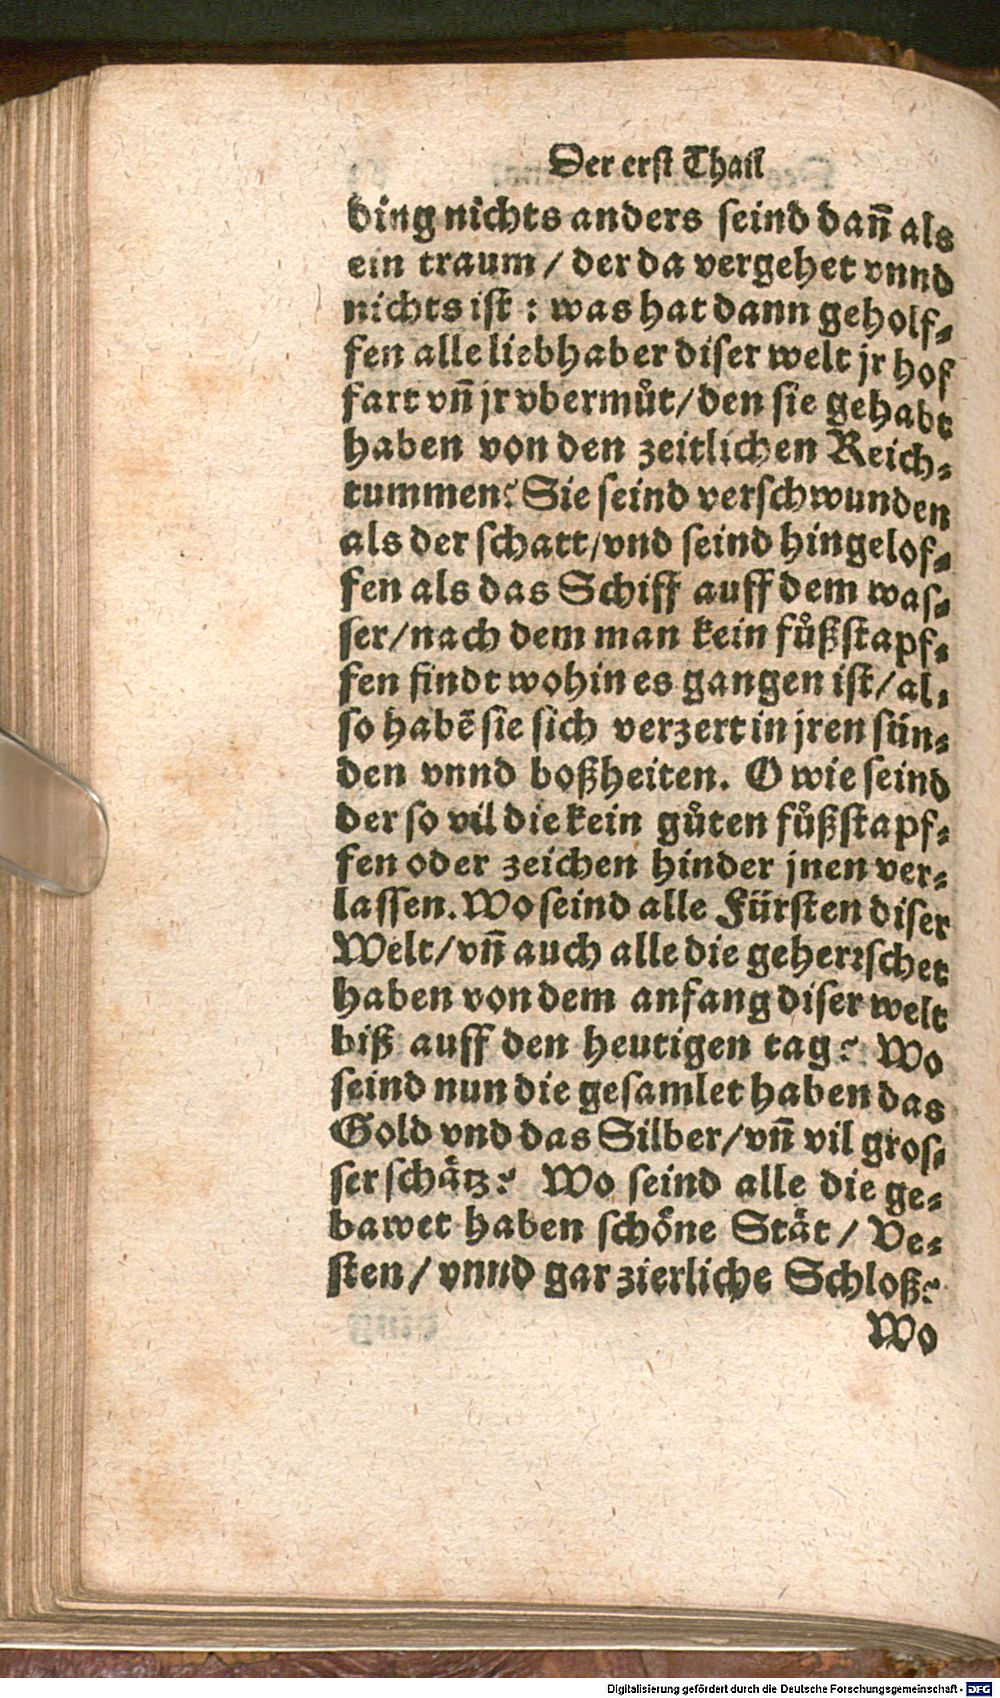 Der erst Thail
ding nichts anders seind dañ als
ein traum / der da vergehet vnnd
nichts ist : was hat dann geholf⸗
fen alle liebhaber diser welt jr hof
fart vñ jr vbermůt / den sie gehabt
haben von den zeitlichen Reich⸗
tummen? Sie seind verschwunden
als der schatt / vnd seind hingelof⸗
fen als das Schiff auff dem was⸗
ser / nach dem man kein fůßstapf⸗
fen findt wohin es gangen ist / al⸗
so habẽ sie sich verzert in jren sün⸗
den vnnd boßheiten. O wie seind
der so vil die kein gůten fůßstapf⸗
fen oder zeichen hinder jnen ver⸗
lassen. Wo seind alle Fürsten diser
Welt / vñ auch alle die geherrschet
haben von dem anfang diser welt
biß auff den heutigen tag? Wo
seind nun die gesamlet haben das
Gold vnd das Silber / vñ vil gros⸗
ser schätz? Wo seind alle die ge⸗
bawet haben schöne Stät / Ve⸗
sten / vnnd gar zierliche Schloß?
Wo
Digitalisierung gefördert durch die Deutsche Forschungsgemeinschaft - DFG